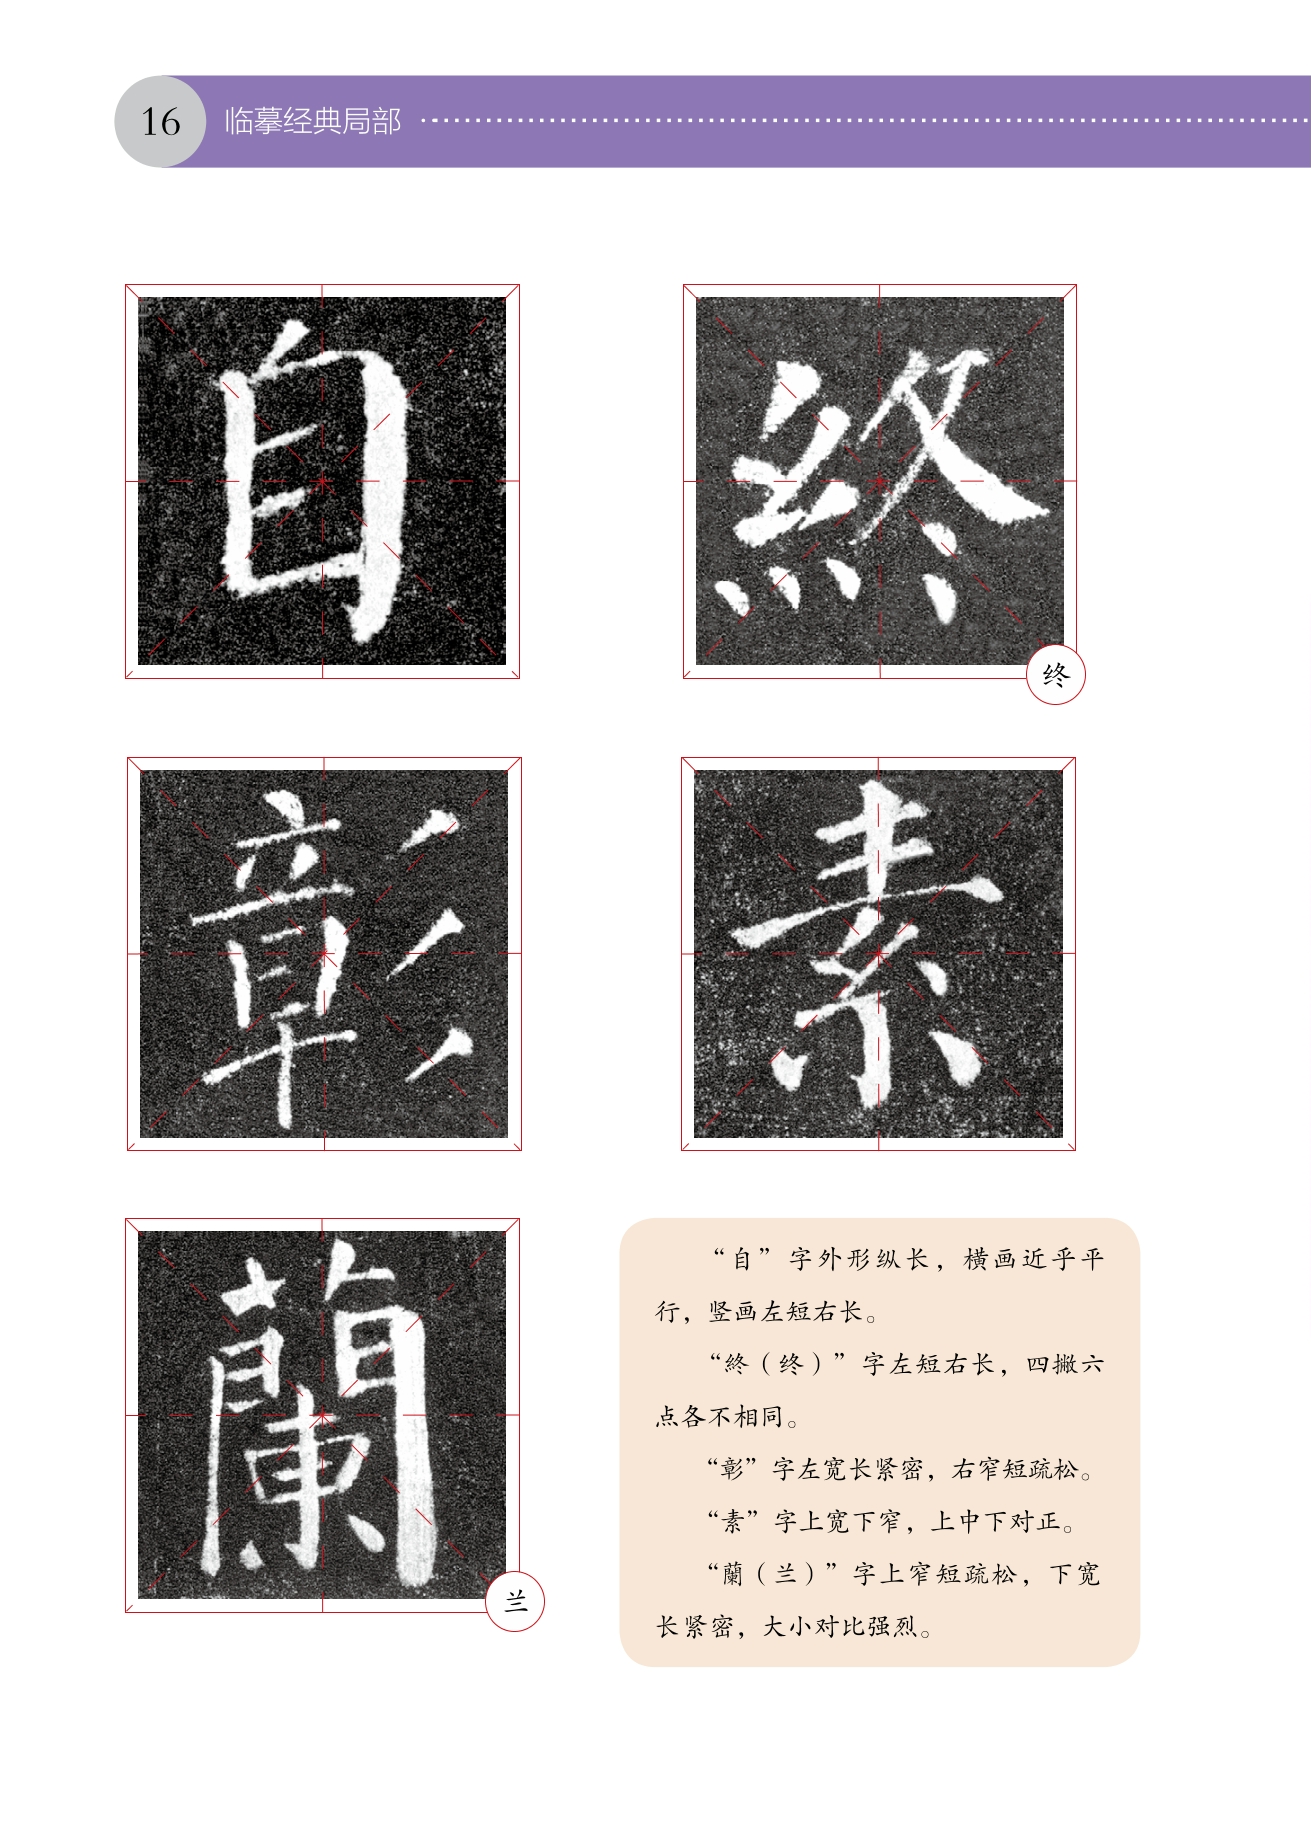 16 临摹经典局部
自
終
终
彰
素
蘭
兰
“自”字外形纵长，横画近乎平
行，竖画左短右长。
“終（终）”字左短右长，四撇六
点各不相同。
“彰”字左宽长紧密，右窄短疏松。
“素”字上宽下窄，上中下对正。
“蘭（兰）”字上窄短疏松，下宽
长紧密，大小对比强烈。